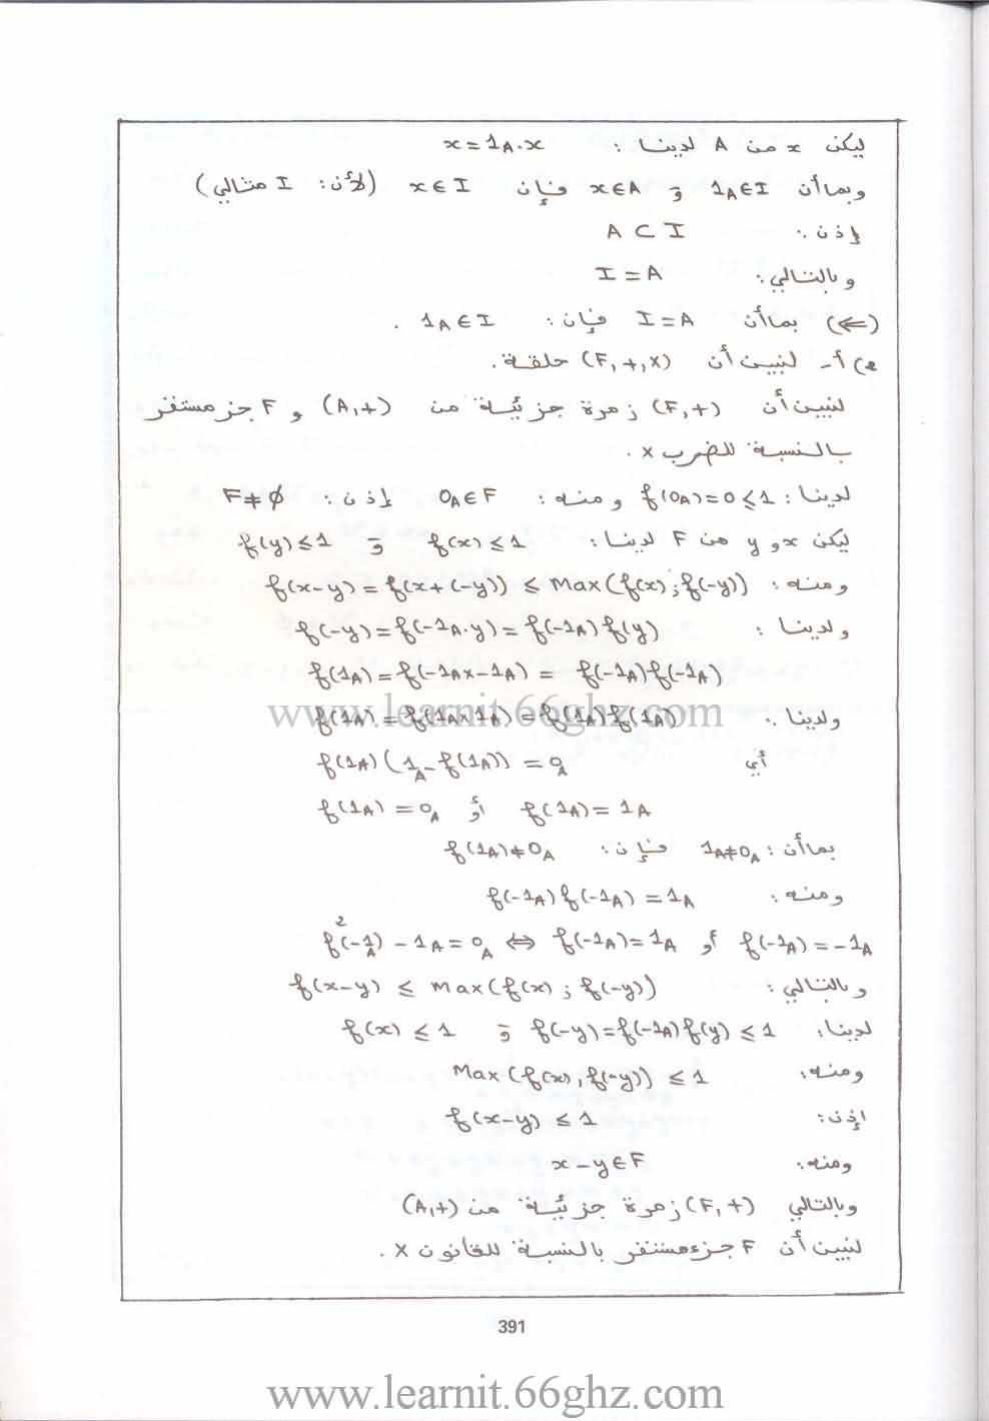 ليكن x من A لدينا : x = 1_A . x
وبما أن 1_A ∈ I و x ∈ A فإن x ∈ I (لأن : I مثالي)
إذن : A ⊂ I
وبالتالي : I = A
(⇐) بما أن I = A فإن : 1_A ∈ I .
2) أ- لنبين أن (F,+,×) حلقة .
لنبين أن (F,+) زمرة جزئية من (A,+) و F جزء مستقر
بالنسبة للضرب × .
لدينا : f(0_A) = 0 ≤ 1 ومنه : 0_A ∈ F إذن : F ≠ ∅
ليكن x و y من F لدينا : f(x) ≤ 1 و f(y) ≤ 1
ومنه : f(x-y) = f(x+(-y)) ≤ Max(f(x) ; f(-y))
ولدينا : f(-y) = f(-1_A . y) = f(-1_A) f(y)
f(1_A) = f(-1_A × -1_A) = f(-1_A) f(-1_A)
ولدينا : f(1_A) = f(1_A × 1_A) = f(1_A) f(1_A)
www.learnit.66ghz.com
أي f(1_A) (1_A - f(1_A)) = 0_A
f(1_A) = 0_A أو f(1_A) = 1_A
بما أن : 1_A ≠ 0_A فإن : f(1_A) ≠ 0_A
ومنه : f(-1_A) f(-1_A) = 1_A
f²(-1_A) - 1_A = 0_A ⇔ f(-1_A) = 1_A أو f(-1_A) = -1_A
وبالتالي : f(x-y) ≤ max(f(x) ; f(-y))
لدينا : f(x) ≤ 1 و f(-y) = f(-1_A) f(y) ≤ 1
ومنه : Max(f(x), f(-y)) ≤ 1
إذن : f(x-y) ≤ 1
ومنه : x - y ∈ F
وبالتالي (F,+) زمرة جزئية من (A,+)
لنبين أن F جزء مستقر بالنسبة للقانون × .
391
www.learnit.66ghz.com